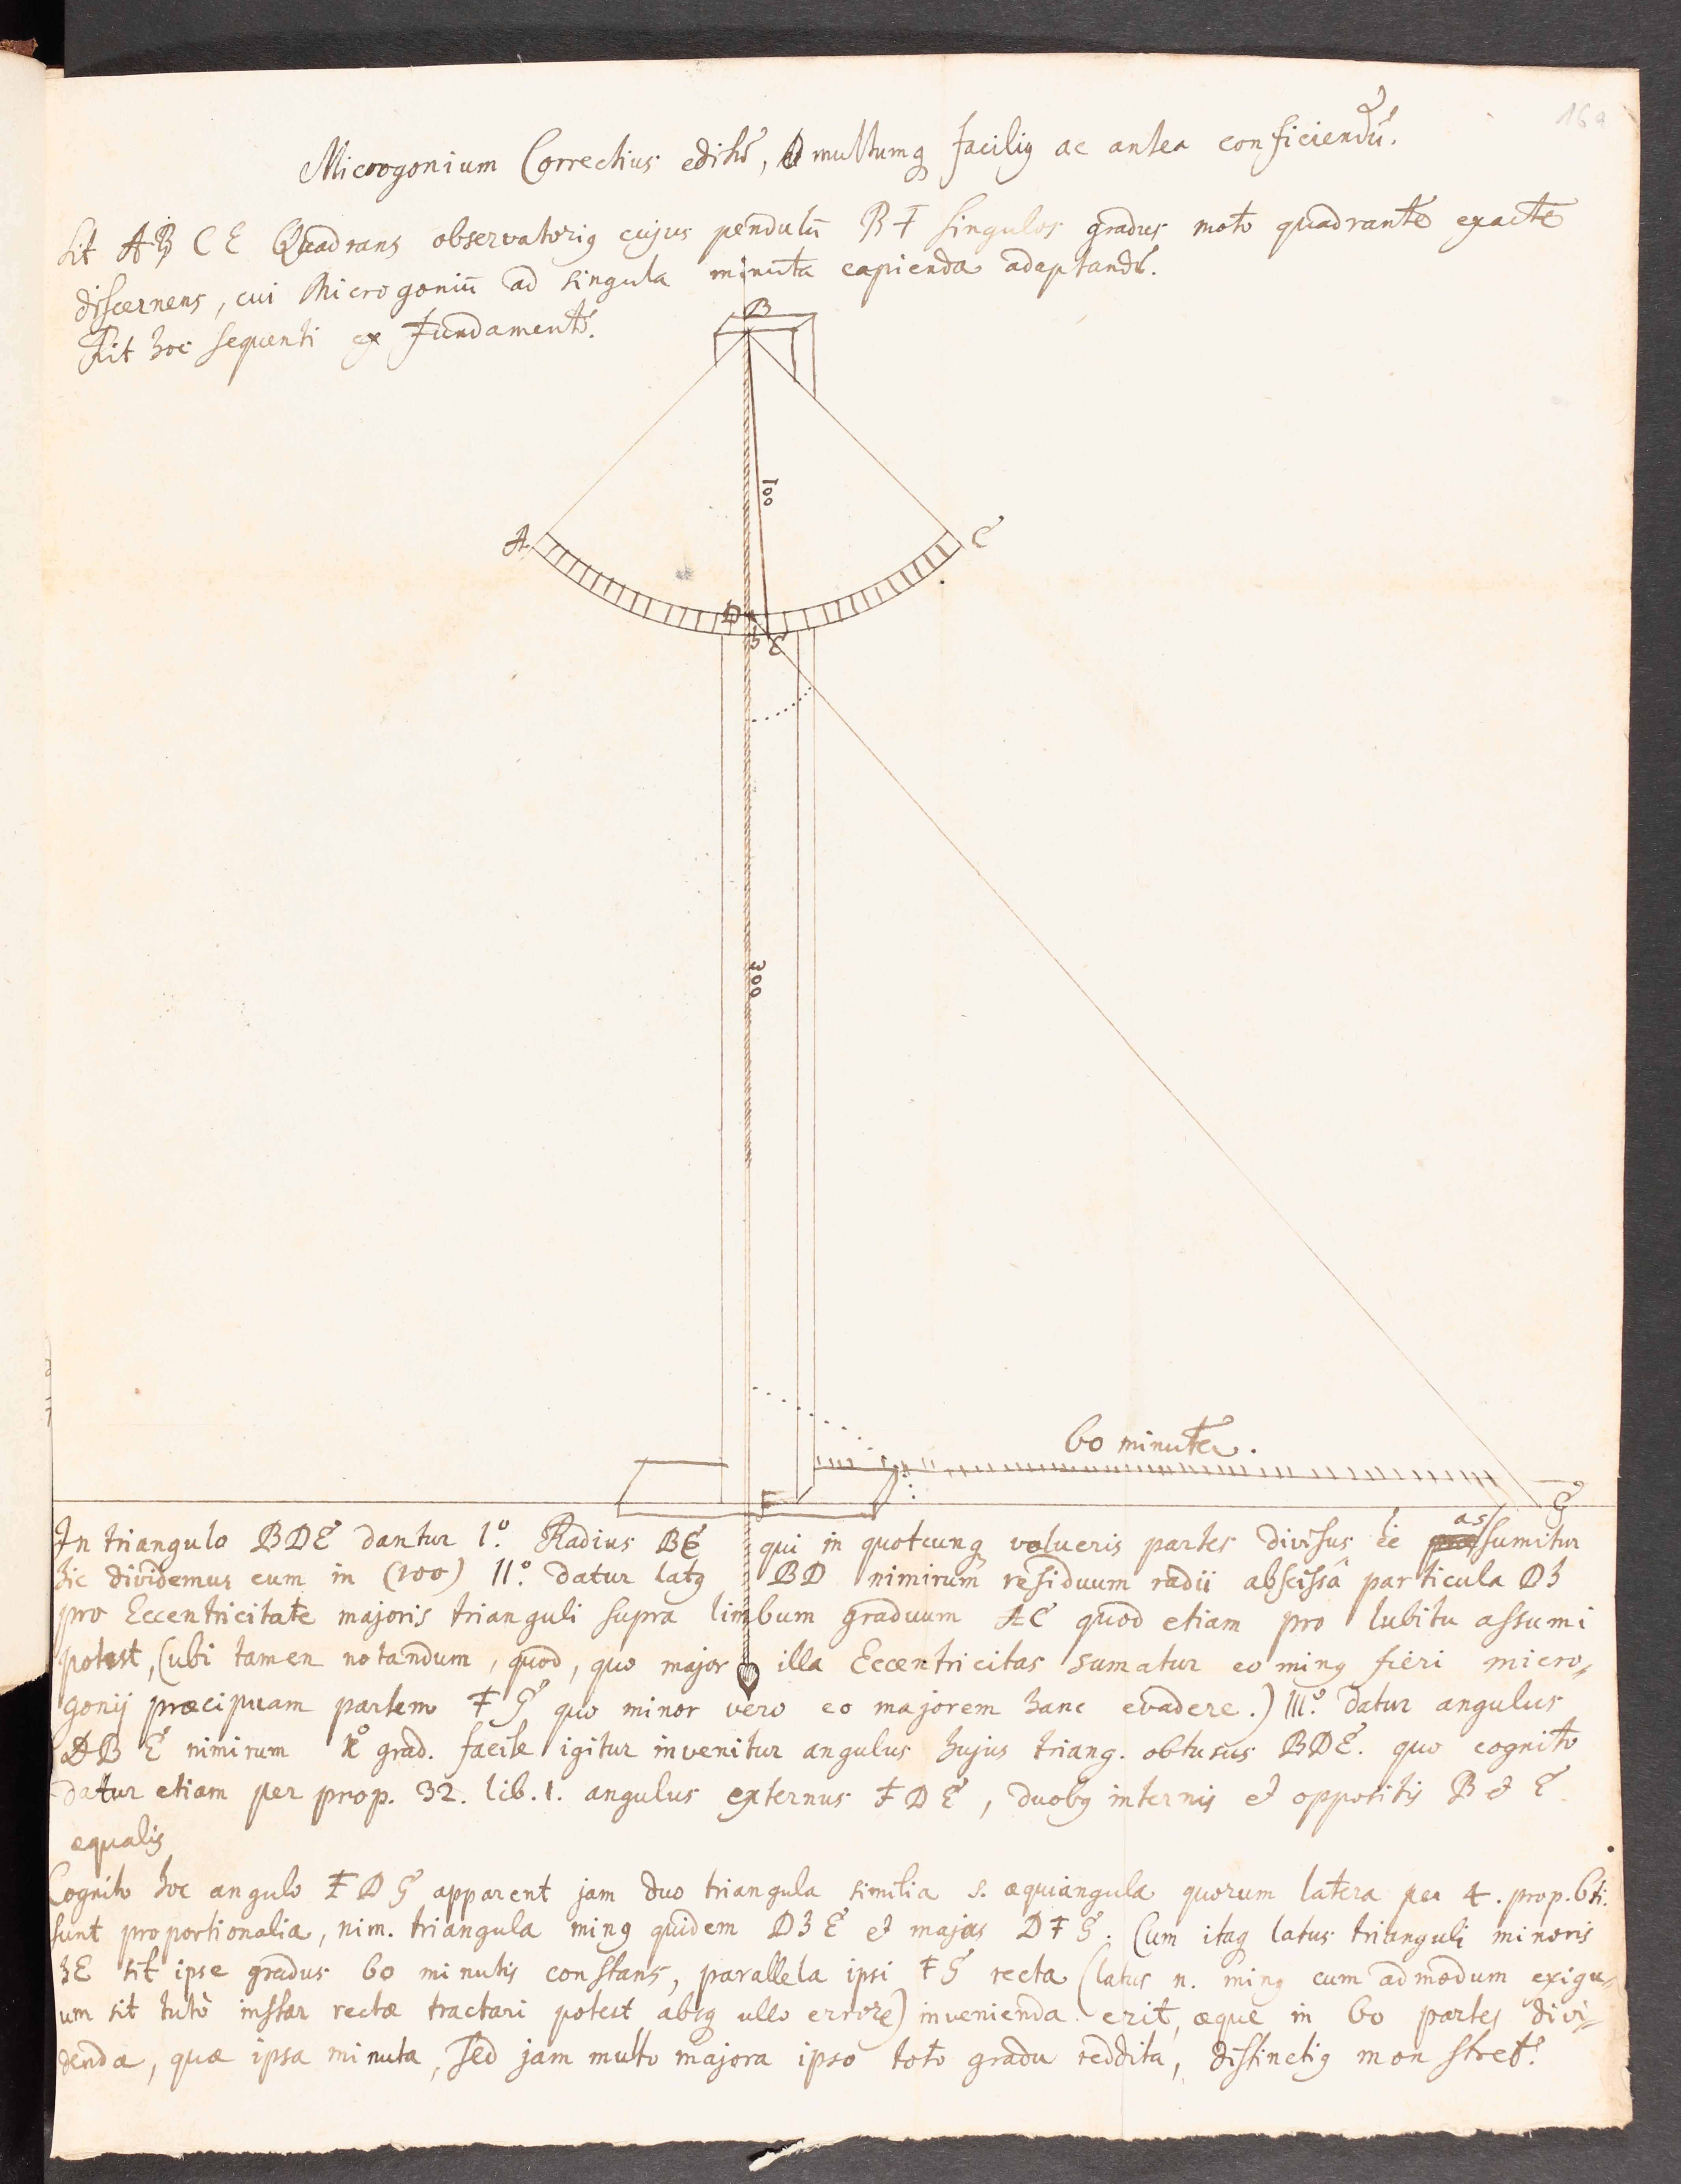 16a
Microgonium Correctius editũ, multumq facilig ac antea conficiendũ.
Sit AB C E Quadrans observatorig cujus pendulũ B F singulos gradus moto quadrante exacte
discernens, cui Microgoniũ ad singula minuta capienda adaptandũ.
Fit hoc sequenti ex Fundamento.
B
100
A
C
D
3
E
300
60 minuta.
F
G
In triangulo BDE dantur 1.º Radius BE qui in quotcunq volueris partes divisus ĩe assumitur
hic dividemus eum in (100) II.º datur latg BD nimirum residuum radii abscissâ particula D3
pro Eccentricitate majoris trianguli supra limbum graduum AC quod etiam pro lubitu assumi
potest, (ubi tamen notandum, quod, quo major illa Eccentricitas sumatur eo ming fieri micro-
gonij præcipuam partem F G quo minor vero eo majorem hanc evadere.) III.º datur angulus
DB E nimirum grad. facile igitur invenitur angulus hujus triang. obtusus BDE. quo cognito
datur etiam per prop. 32. lib. 1. angulus externus F D E, duobg internis et oppositis B et E
equalis
Cognito hoc angulo F D G apparent jam duo triangula similia s. æquiangula quorum latera per 4. prop. 6ti.
sunt proportionalia, nim. triangula ming quidem D3E et majus D F G. Cum itaq latus trianguli minoris
3E sit ipse gradus 60 minutis constans, parallela ipsi F G recta (latus n. ming cum admodum exigu-
um sit tutò instar rectæ tractari potest absq ullo errore) invenienda erit, æque in 60 partes divi-
denda, quæ ipsa minuta, sed jam multo majora ipso toto gradu reddita, distinctig monstret.